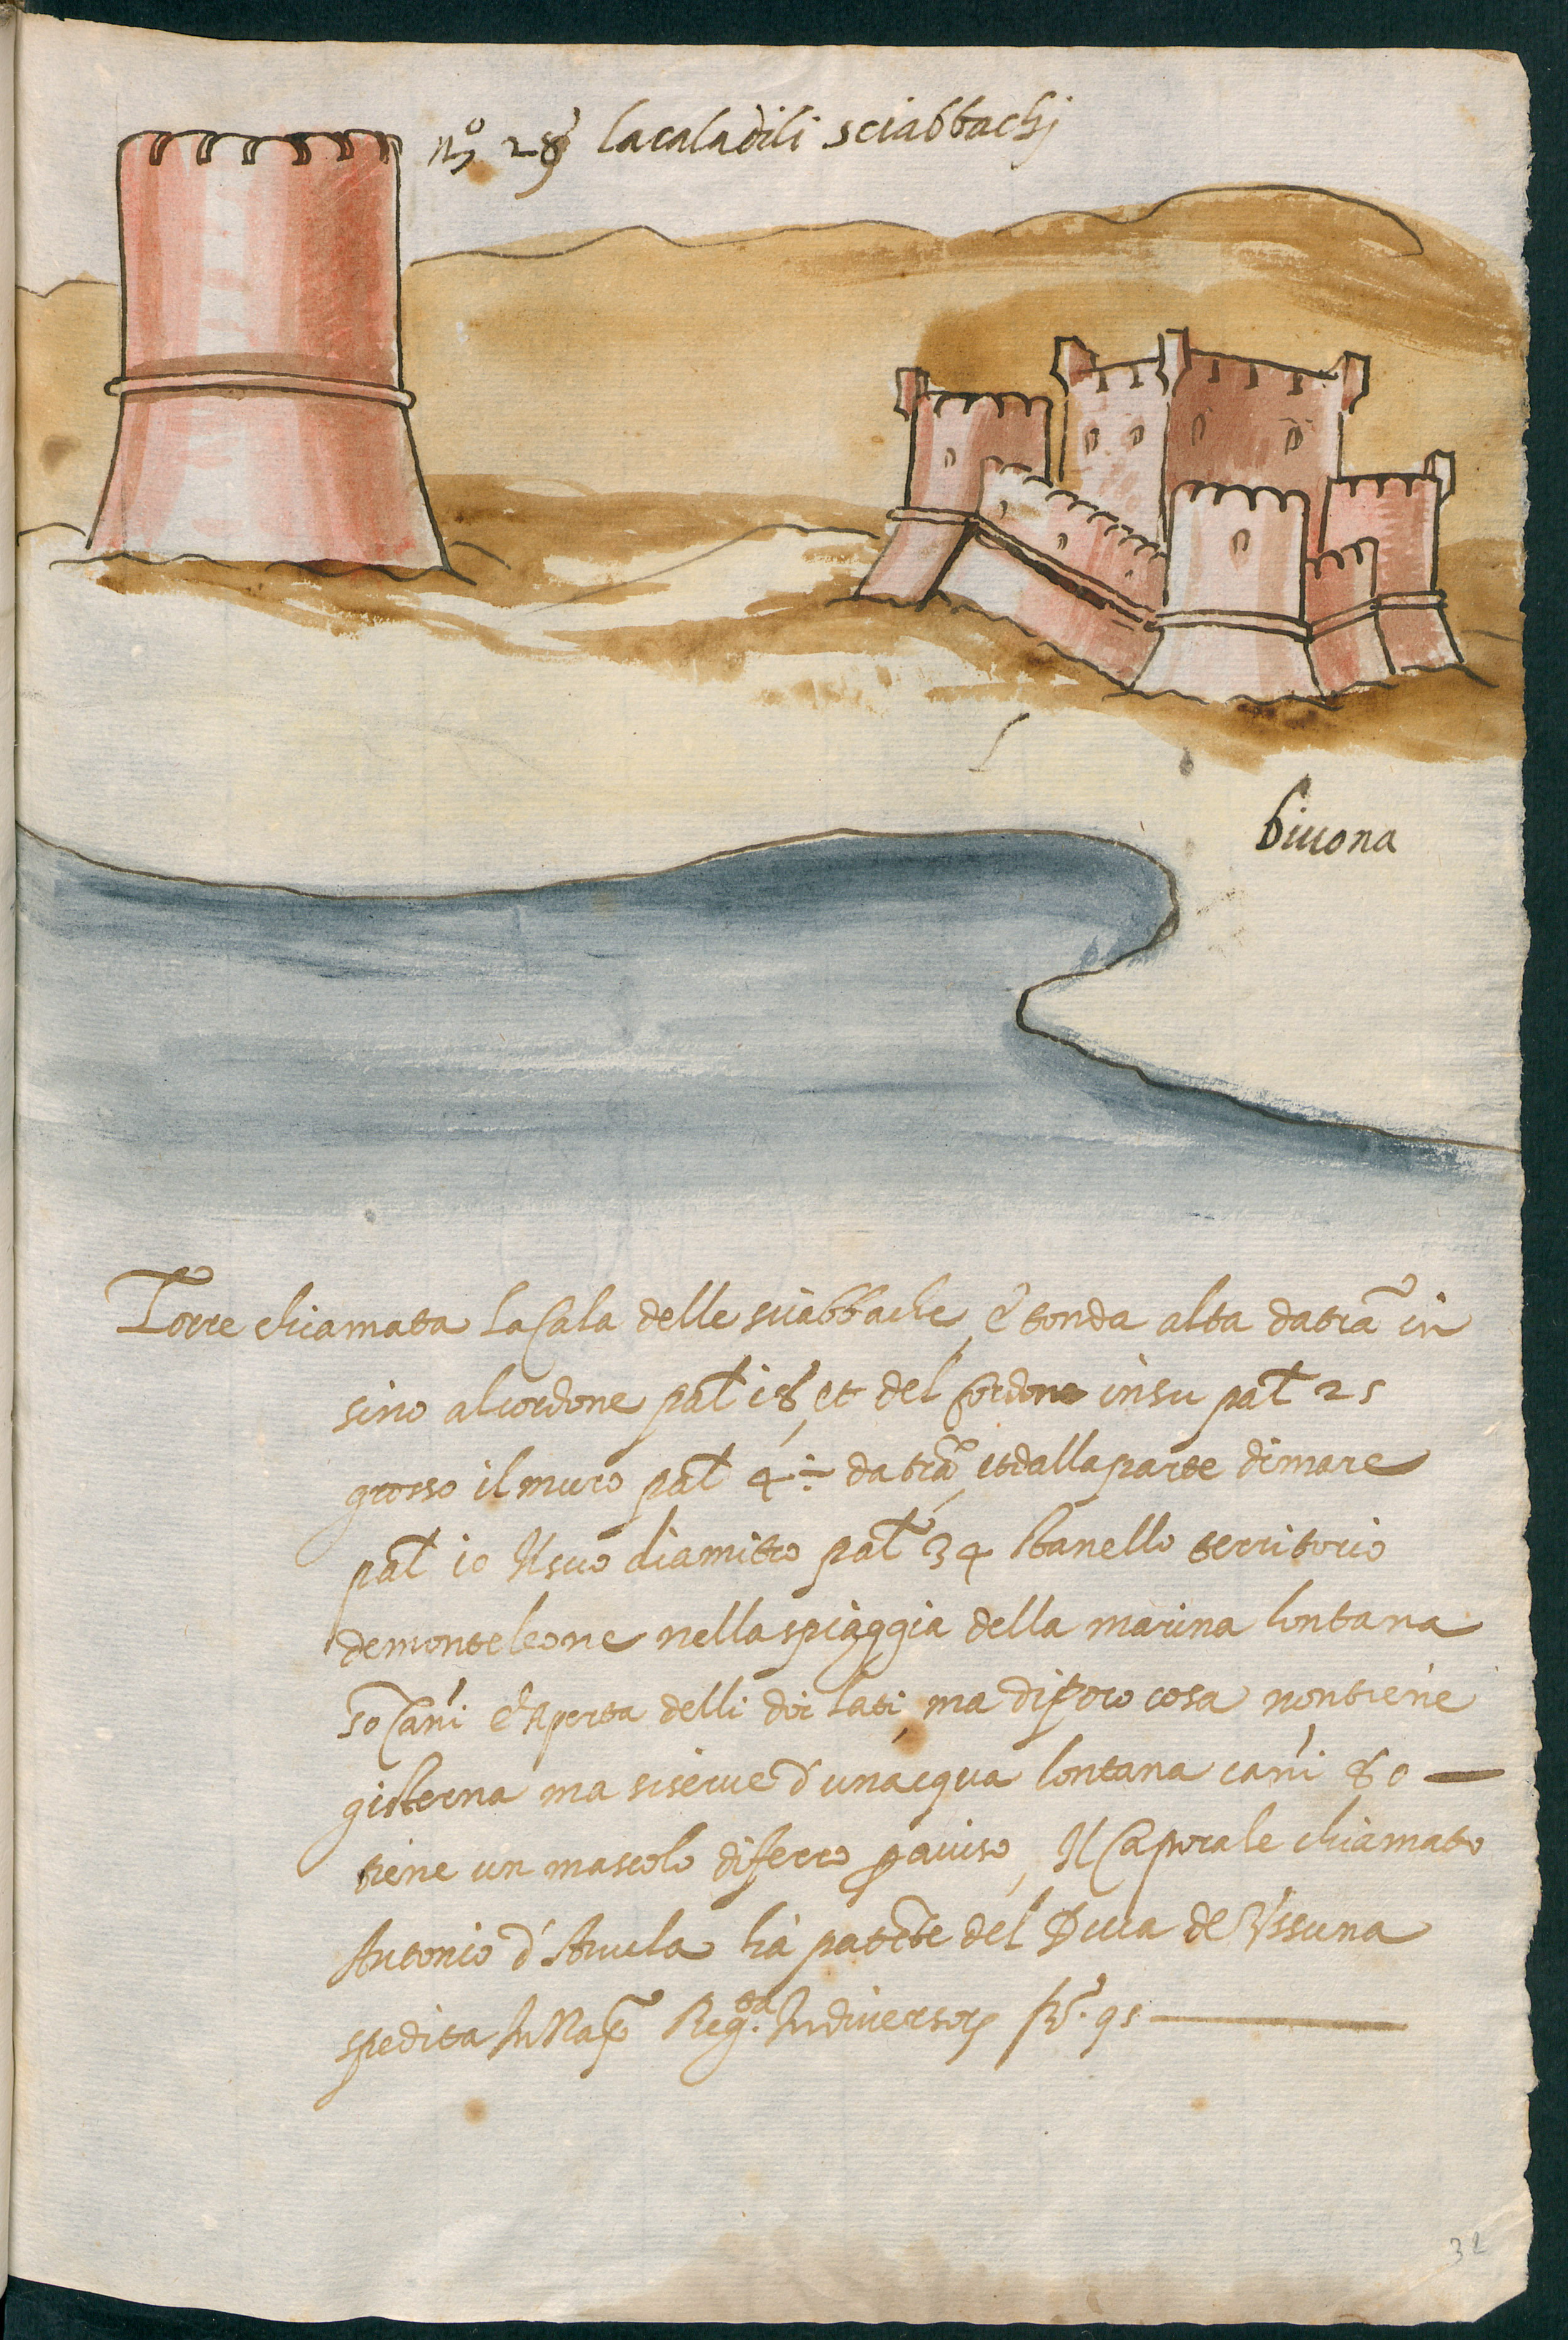 no 28 lacaladili sciabbachi
biuona
Torre chiamata La Cala delle sciabbache, è tonda alta da trā in
sino al cordone pal 18, et del Cordone in su pal 25
grosso il muro pal 4 ÷ da trā, et dalla parte di mare
pal 10 Il suo diamitro pal 34 Sta nello territorio
de monteleone nella spiaggia della marina lontana
50 Canni è Aperta delli doi lati, ma di poco cosa non tiene
gisterna ma si serue d'un acqua lontana canni 80 —
tiene un mascolo di ferro p auiso, Il Caporale chiamato
Antonio d'Auula hà patēte del Duca de Ussuna
spedita In Nap Reg.ta In diversorū fo. 95 —
32